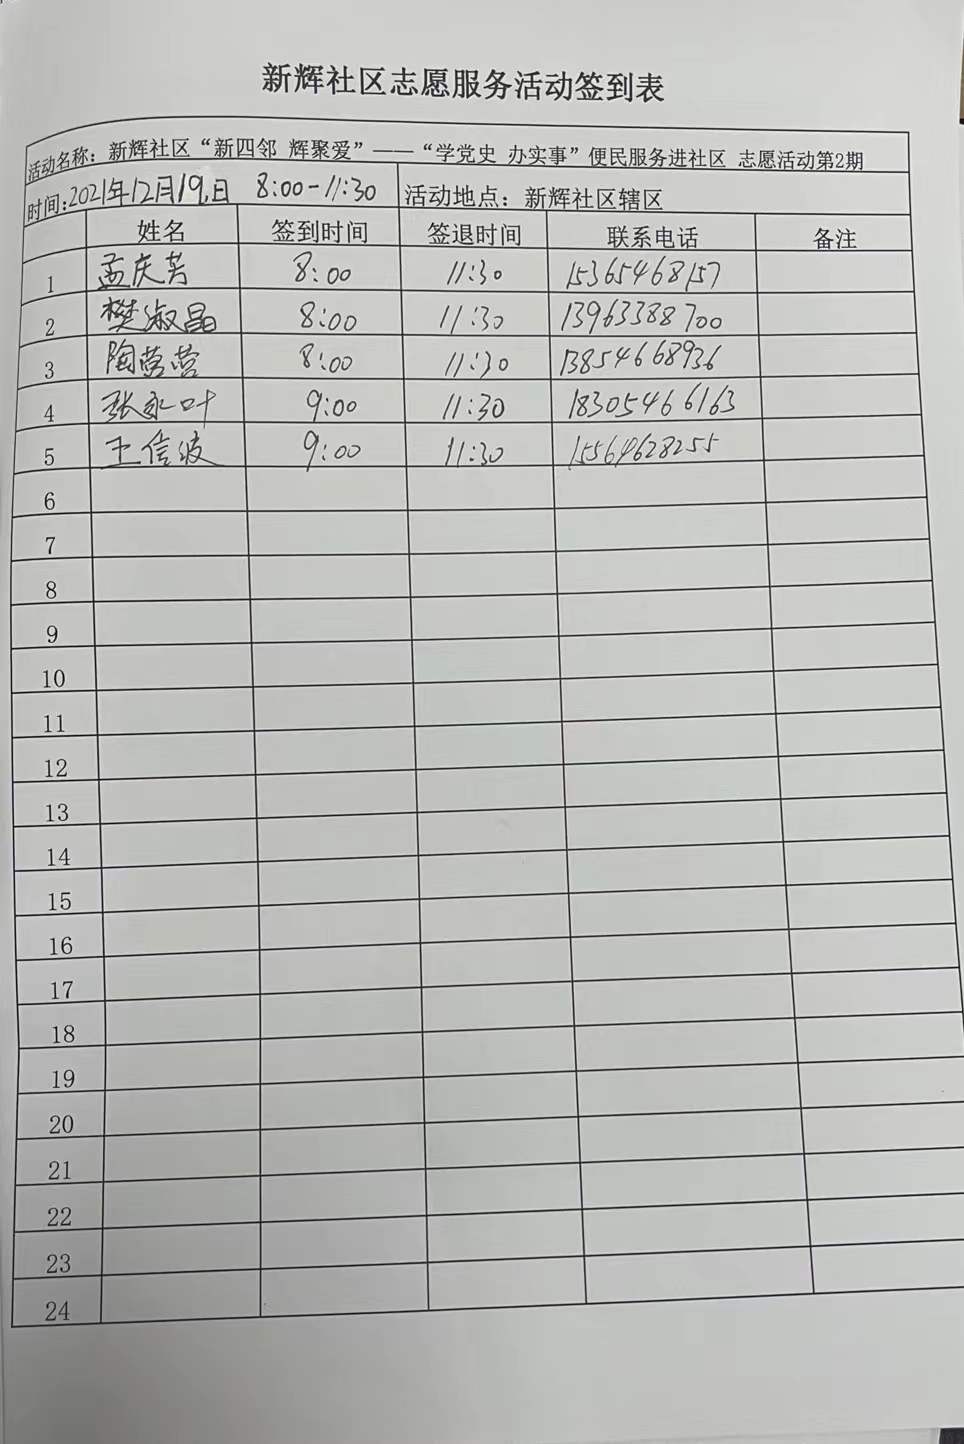 新辉社区志愿服务活动签到表
活动名称：新辉社区“新四邻 辉聚爱”——“学党史 办实事”便民服务进社区 志愿活动第2期
时间:2021年12月19日 8:00-11:30 活动地点：新辉社区辖区
姓名 签到时间 签退时间 联系电话 备注
1 孟庆芳 8:00 11:30 15365468157
2 樊淑晶 8:00 11:30 13963388700
3 陶营营 8:00 11:30 13854668936
4 张永叶 9:00 11:30 18305466163
5 王信波 9:00 11:30 15564628255
6
7
8
9
10
11
12
13
14
15
16
17
18
19
20
21
22
23
24